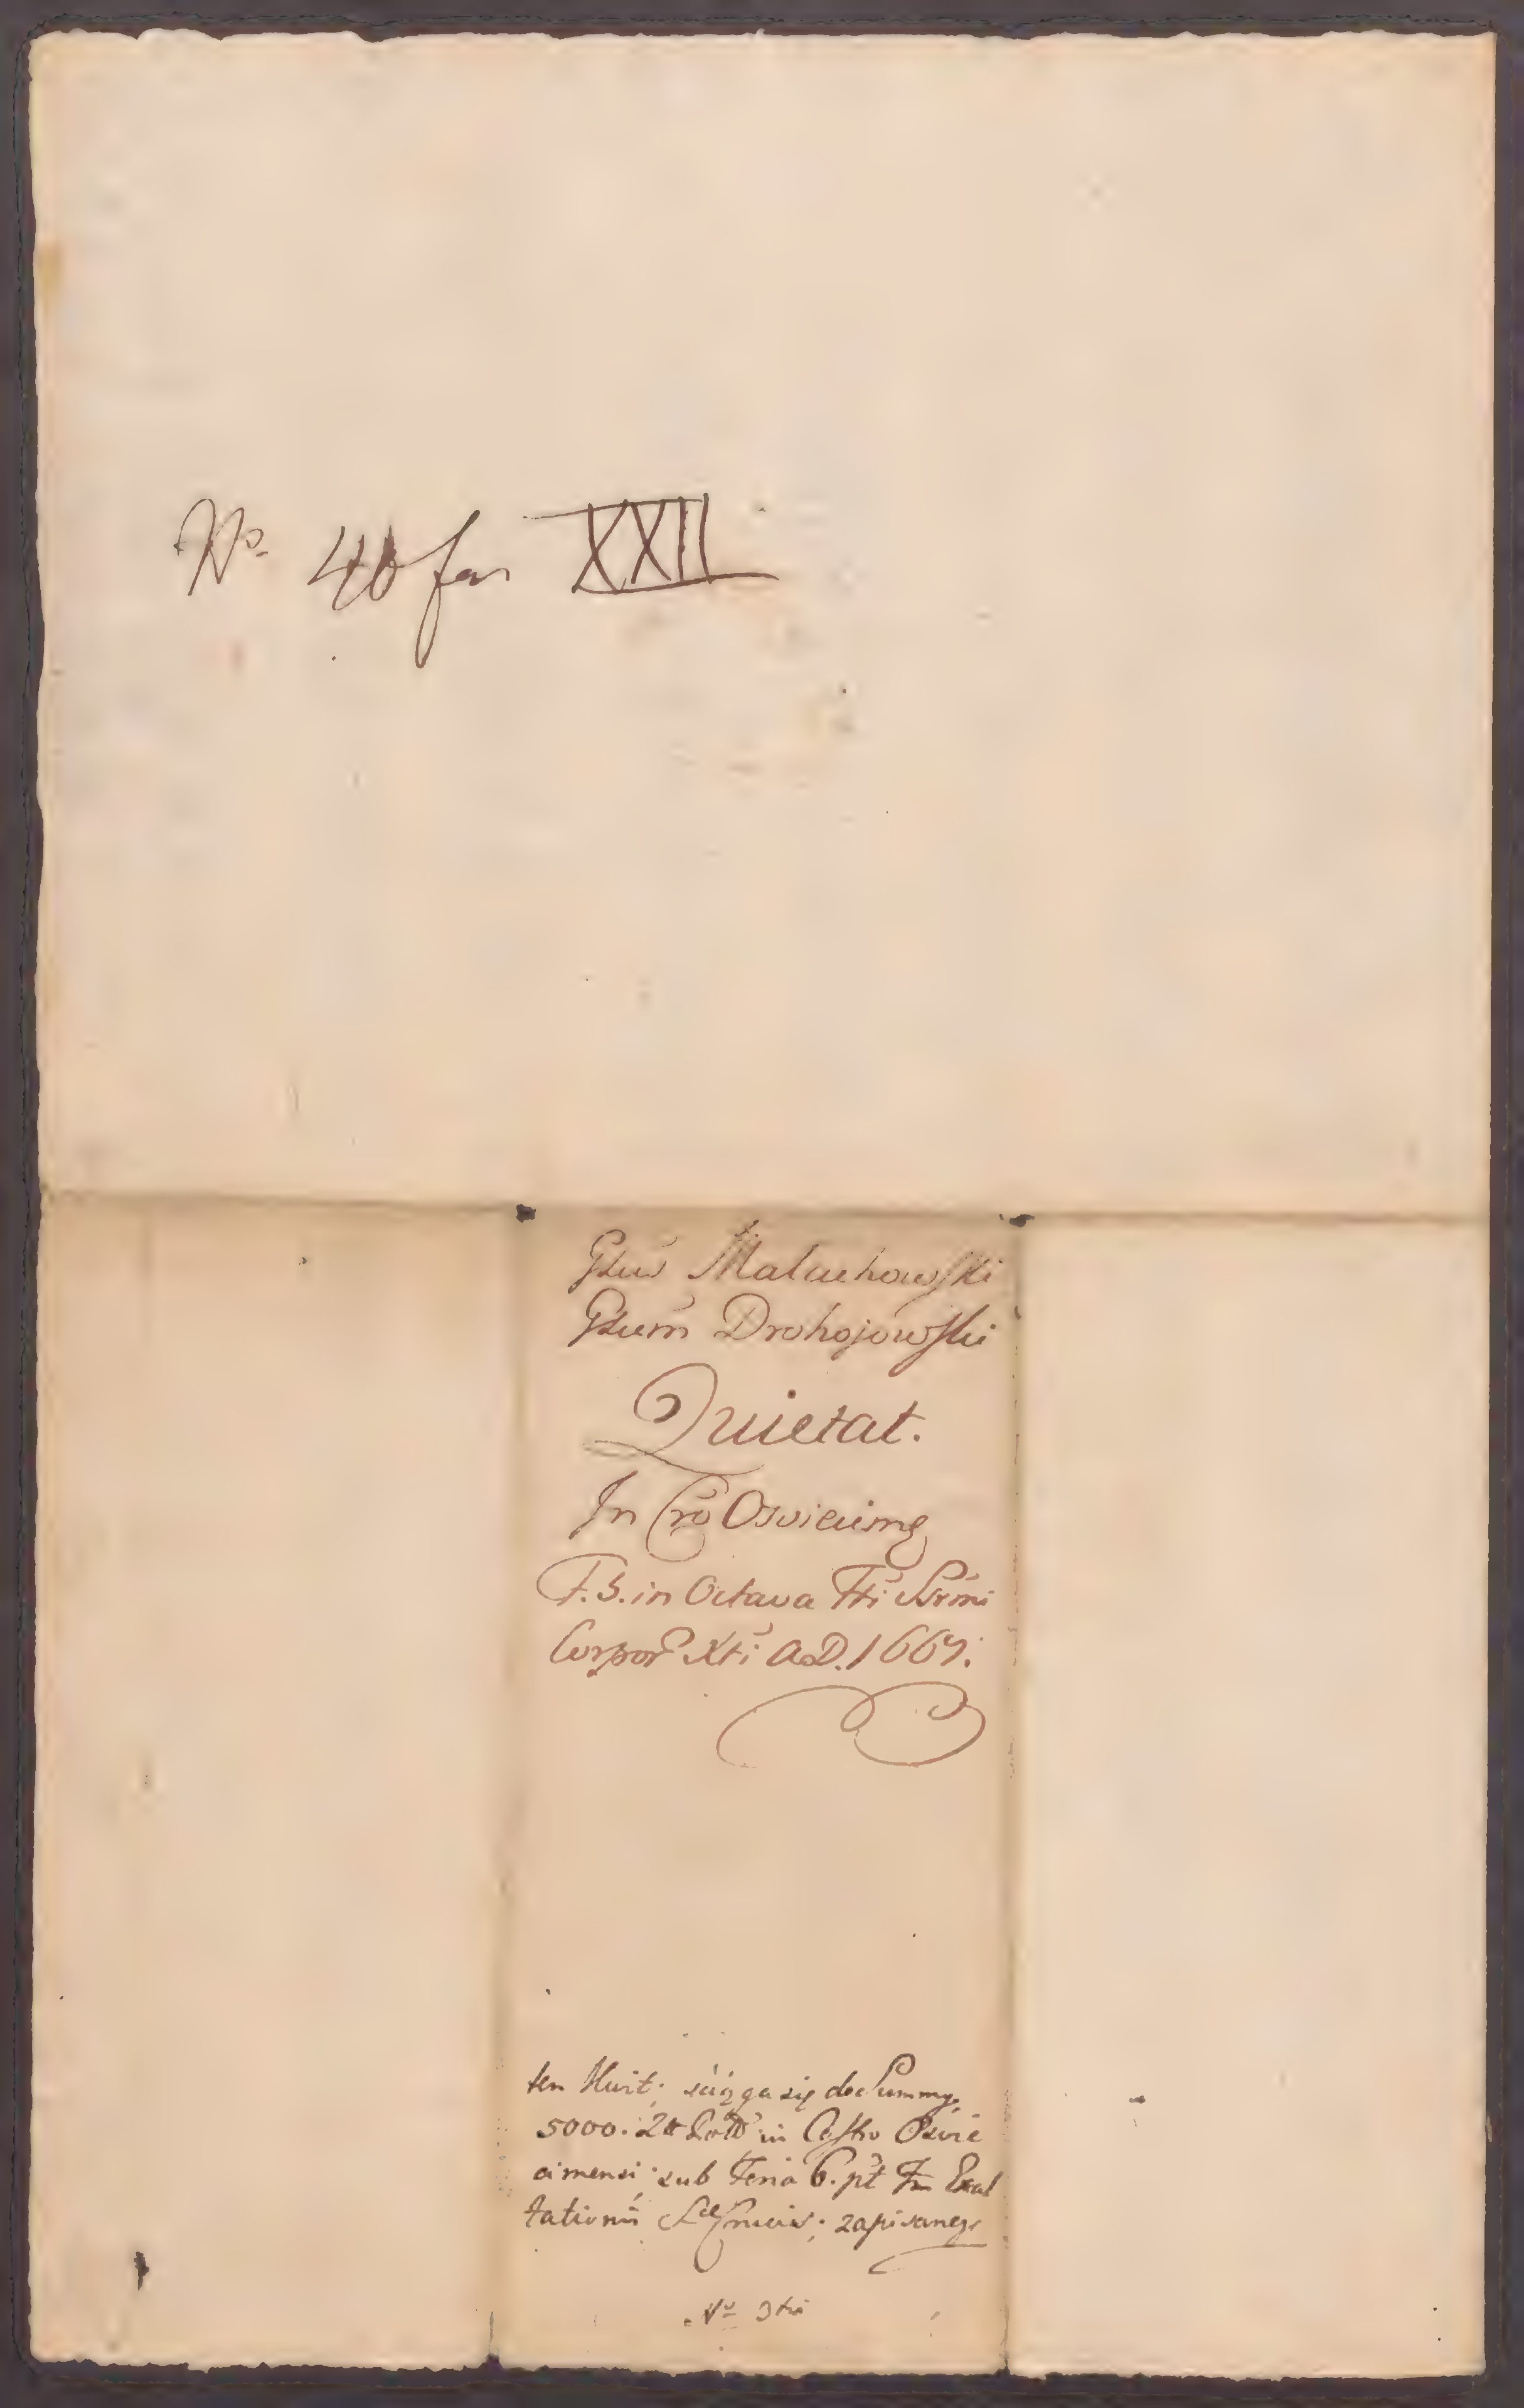 No. 40 fas XXII
Gsus Malachowski
Gsum Drohojowski
Quietat.
In Cro Osviecimę
F. 5. in Octava Fti Ssrmi
Corpor Xti A.D. 1669.
ten Kwit; sciąga się do Summy
5000. in Castro Osvie
cimensi; sub Feria 6. pt Fm Exal
tationis Sae Crucis; zapisaney
No 3tio